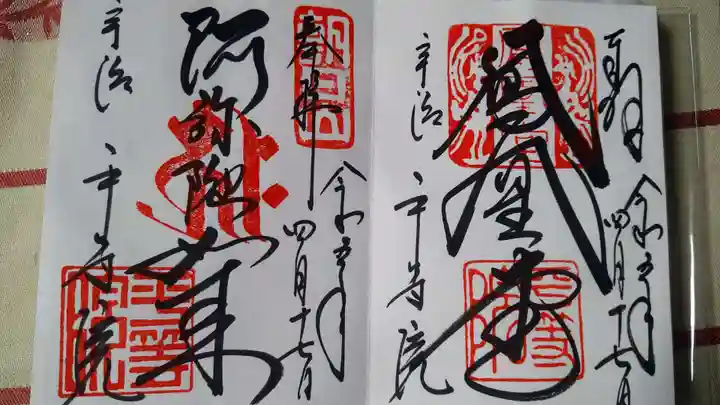 奉拝
令和五年
四月十七日
鳳凰堂
宇治
平等院
朝日
奉拝
令和五年
四月十七日
阿弥陀如来
宇治
平等院
平等院